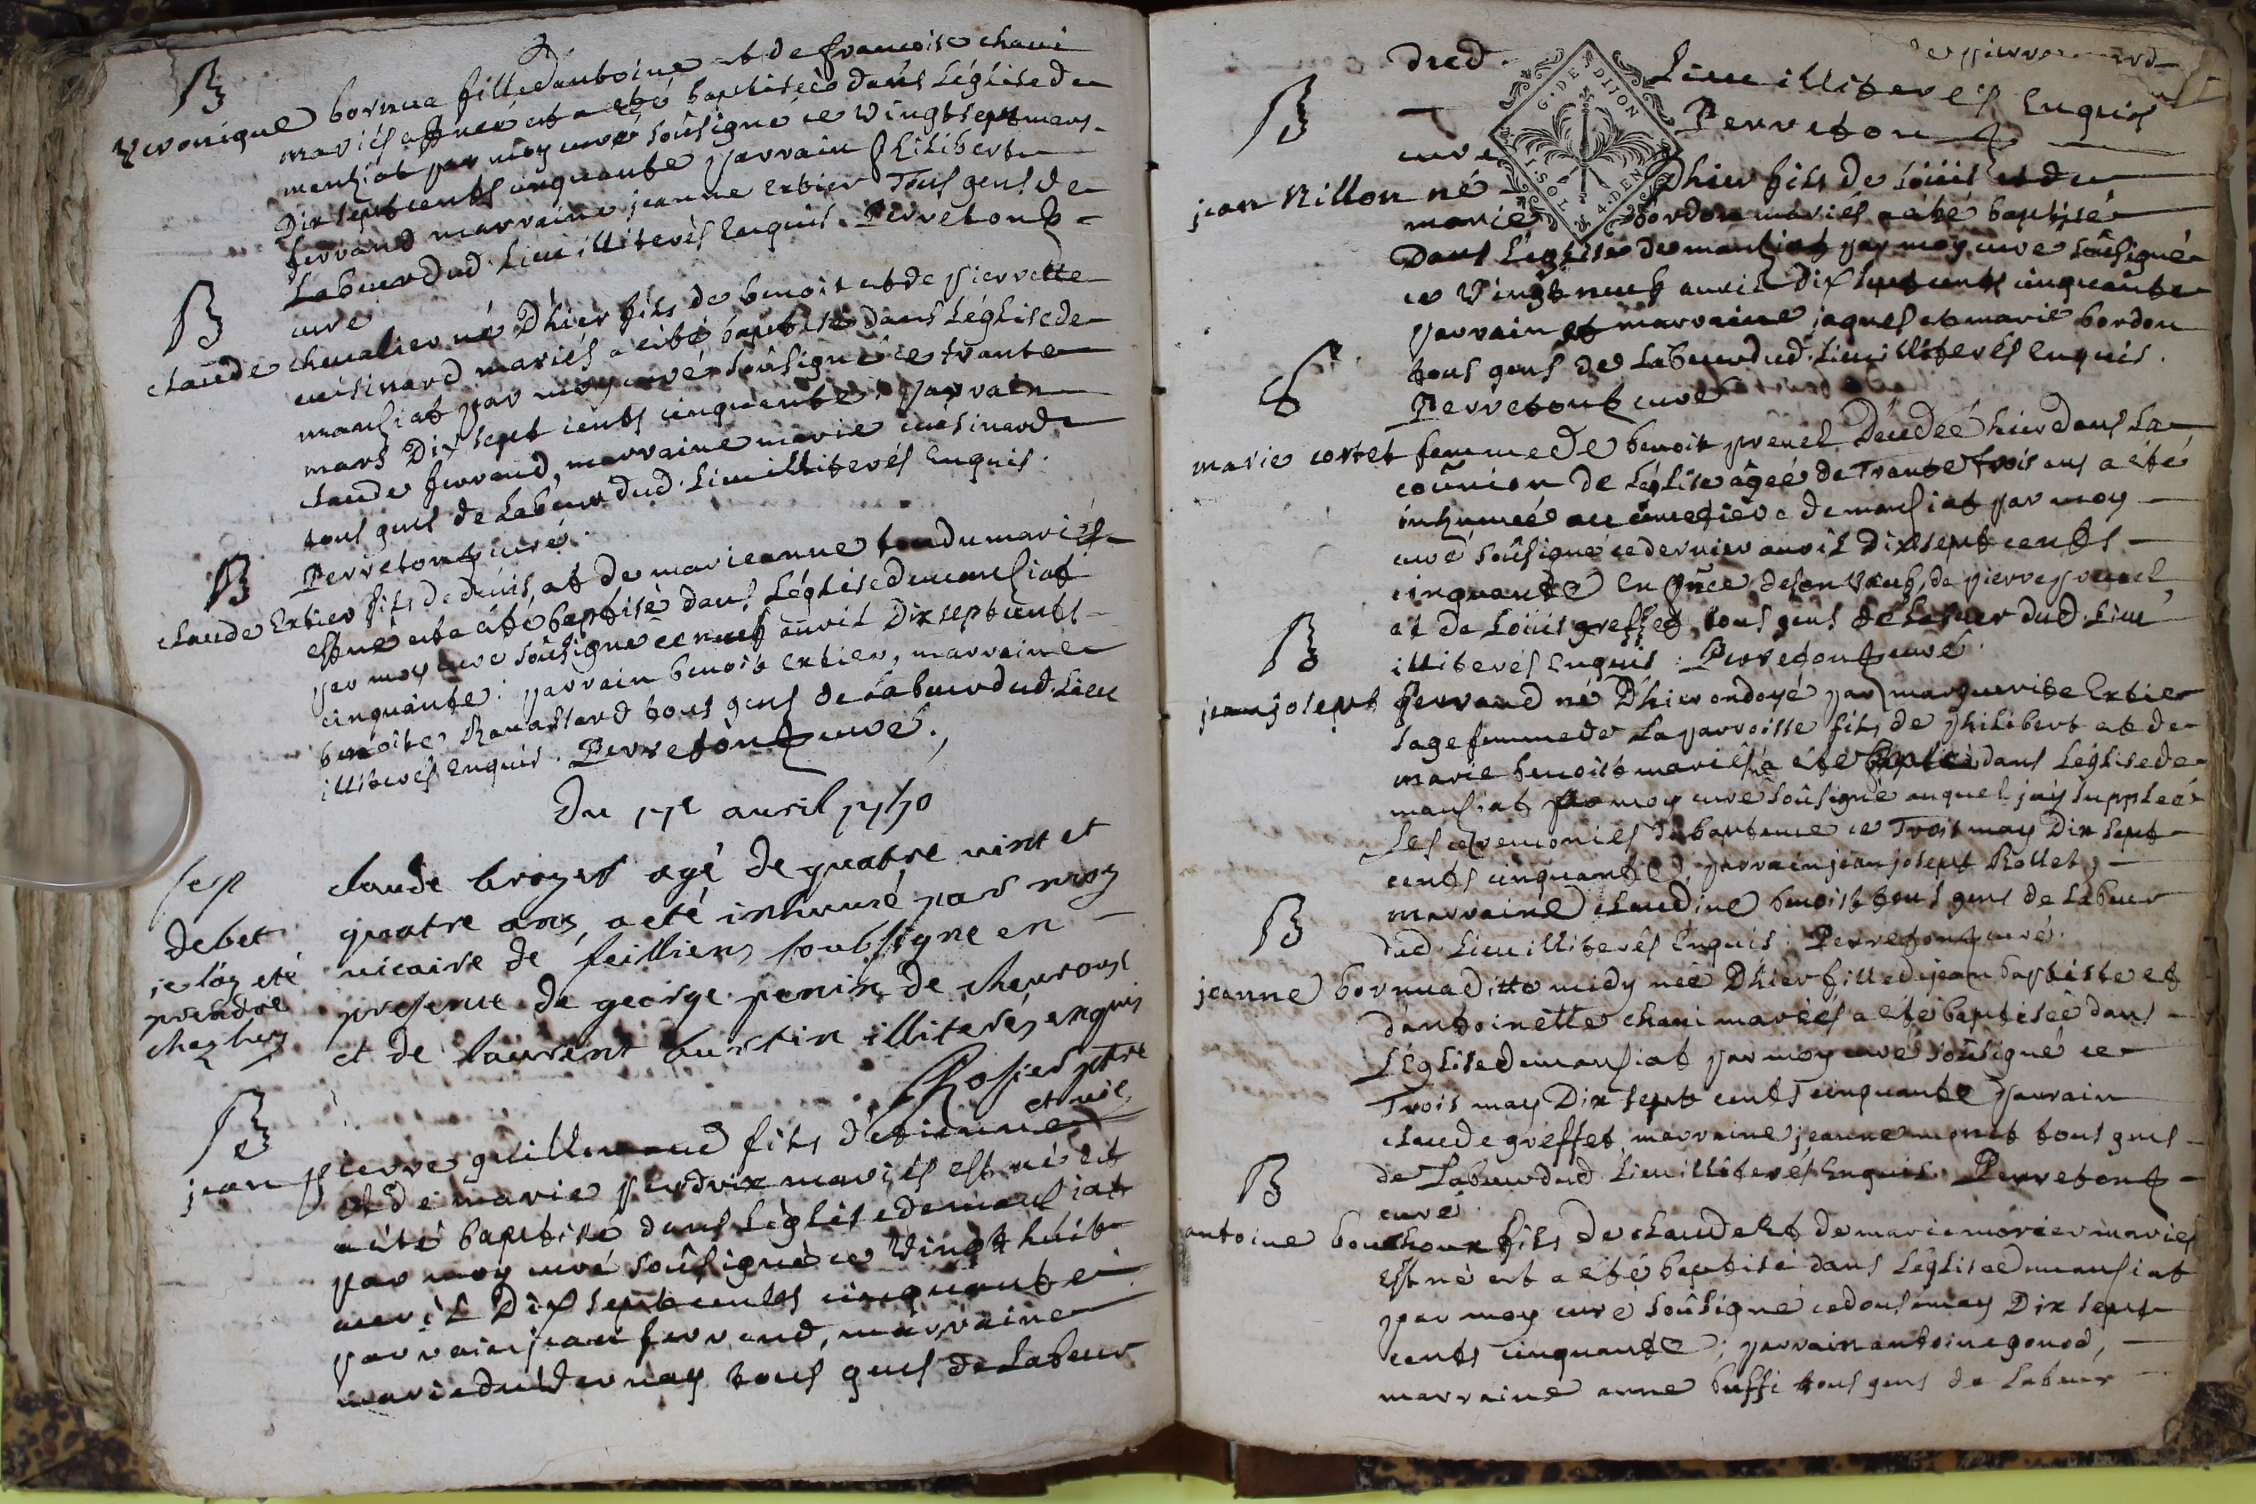 B
Veronique bornua fille dantoine et de francoise chani
mariés est née et a eté baptiseé dans Léglise de
manziat par moy curé soûsigné ce Vingt sept mars
Dix sept cents cinquante parrain philibert
ferrand marraine jeanne Extier Tous gens de
Labeur dud. Lieu illiterés Enquis. Perreton
curé
B
claude chevalier né D'hier fils de benoit et de pierrette
cuisinard mariés a eité baptisé dans Léglise de
manziat par moy curé soûsigné ce trante
mars Dix sept cents cinquante, parrain
claude ferrand, marraine marie cuisinard
tous gens de Labeur dud. Lieu illiterés Enquis.
Perreton curé.
B
claude Extier fils de denis, et de marieanne tondu mariés
est né et a eité baptisé dans Léglise de manziat
par moy curé soûsigné ce neuf avril Dix sept cents
cinquante: parrain benoit Extier, marraine
benoite Ravassard tous gens de Labeur dud. Lieu
illiterés Enquis. Perreton curé.
du avril 1750
sep
claude brozes agé de quatre vint et
quatre ans, a eté inhumé par moy
vicaire de feilliens soubsigné en
presence de george de chevroux
et de laurent illiterés enquis
debet
je l'ay eté
prendre
chez luy
Rosier ptre
et vic
B
jean pierre guillemaud fils d'etienne
et de marie perdrix mariés est né et
a eité baptisé dans Léglise de manziat
par moy curé soûsigné ce Vingt huit
avril Dix sept cents cinquante
parrain jean ferrand, marraine
marie duvernay tous gens de Labeur
dud. Lieu illiterés Enquis
Perreton
curé
G. DE DIJON
4. DEN
I. SOL
B
jean Nillon né Dhier fils de Loüis et de
marie bordon mariés a eté baptisé
Dans Léglise de manziat par moy curé soûsigné
ce Vingt neuf avril Dix sept cents cinquante
parrain et marraine jaques et marie bordon
tous gens de Labeur dud. Lieu illiterés Enquis.
Perreton curé
S
marie cortet femme de benoit prevel Décédeé hier dans La
coûnion de Léglise âgeé de Trante trois ans a eté
inhumeé au cimetiere de manziat par moy
curé soûsigné ce dernier avril Dix sept cents
cinquante En pñce de son Veuf, de pierre prevel,
et de Loüis greffet tous gens de Labeur dud. Lieu
illiterés Enquis: Perreton curé.
B
jean joseph ferrand né D'hier ondoyé par marguerite Extier
sage femme de La parroisse fils de philibert et de
marie benoist mariés, a eté dans Léglise de
manziat par moy curé soûsigné auquel j'ay suppleé
Les ceremonies du bapteme ce Trois may Dix sept
cents cinquante, parrain jean joseph Rollet,
marraine claudine benoist tous gens de Labeur
dud. Lieu illiterés Enquis. Perreton curé.
B
jeanne bornua ditto midy neé D'hier fille de jean baptiste et
d'antoinette chani mariés a eté baptiseé dans
Léglise de manziat par moy curé soûsigné ce
Trois may Dix sept cents cinquante parrain
claude greffet marraine jeanne tous gens
de Labeur dud Lieu illiterés Enquis. Perreton
curé.
B
antoine bouchoux fils de claude et de marie morier mariés
est né et a eté baptisé dans Léglise de manziat
par moy curé soûsigné ce douse may Dix sept
cents cinquante; parrain antoine gonod,
marraine anne buffi tous gens de Labeur